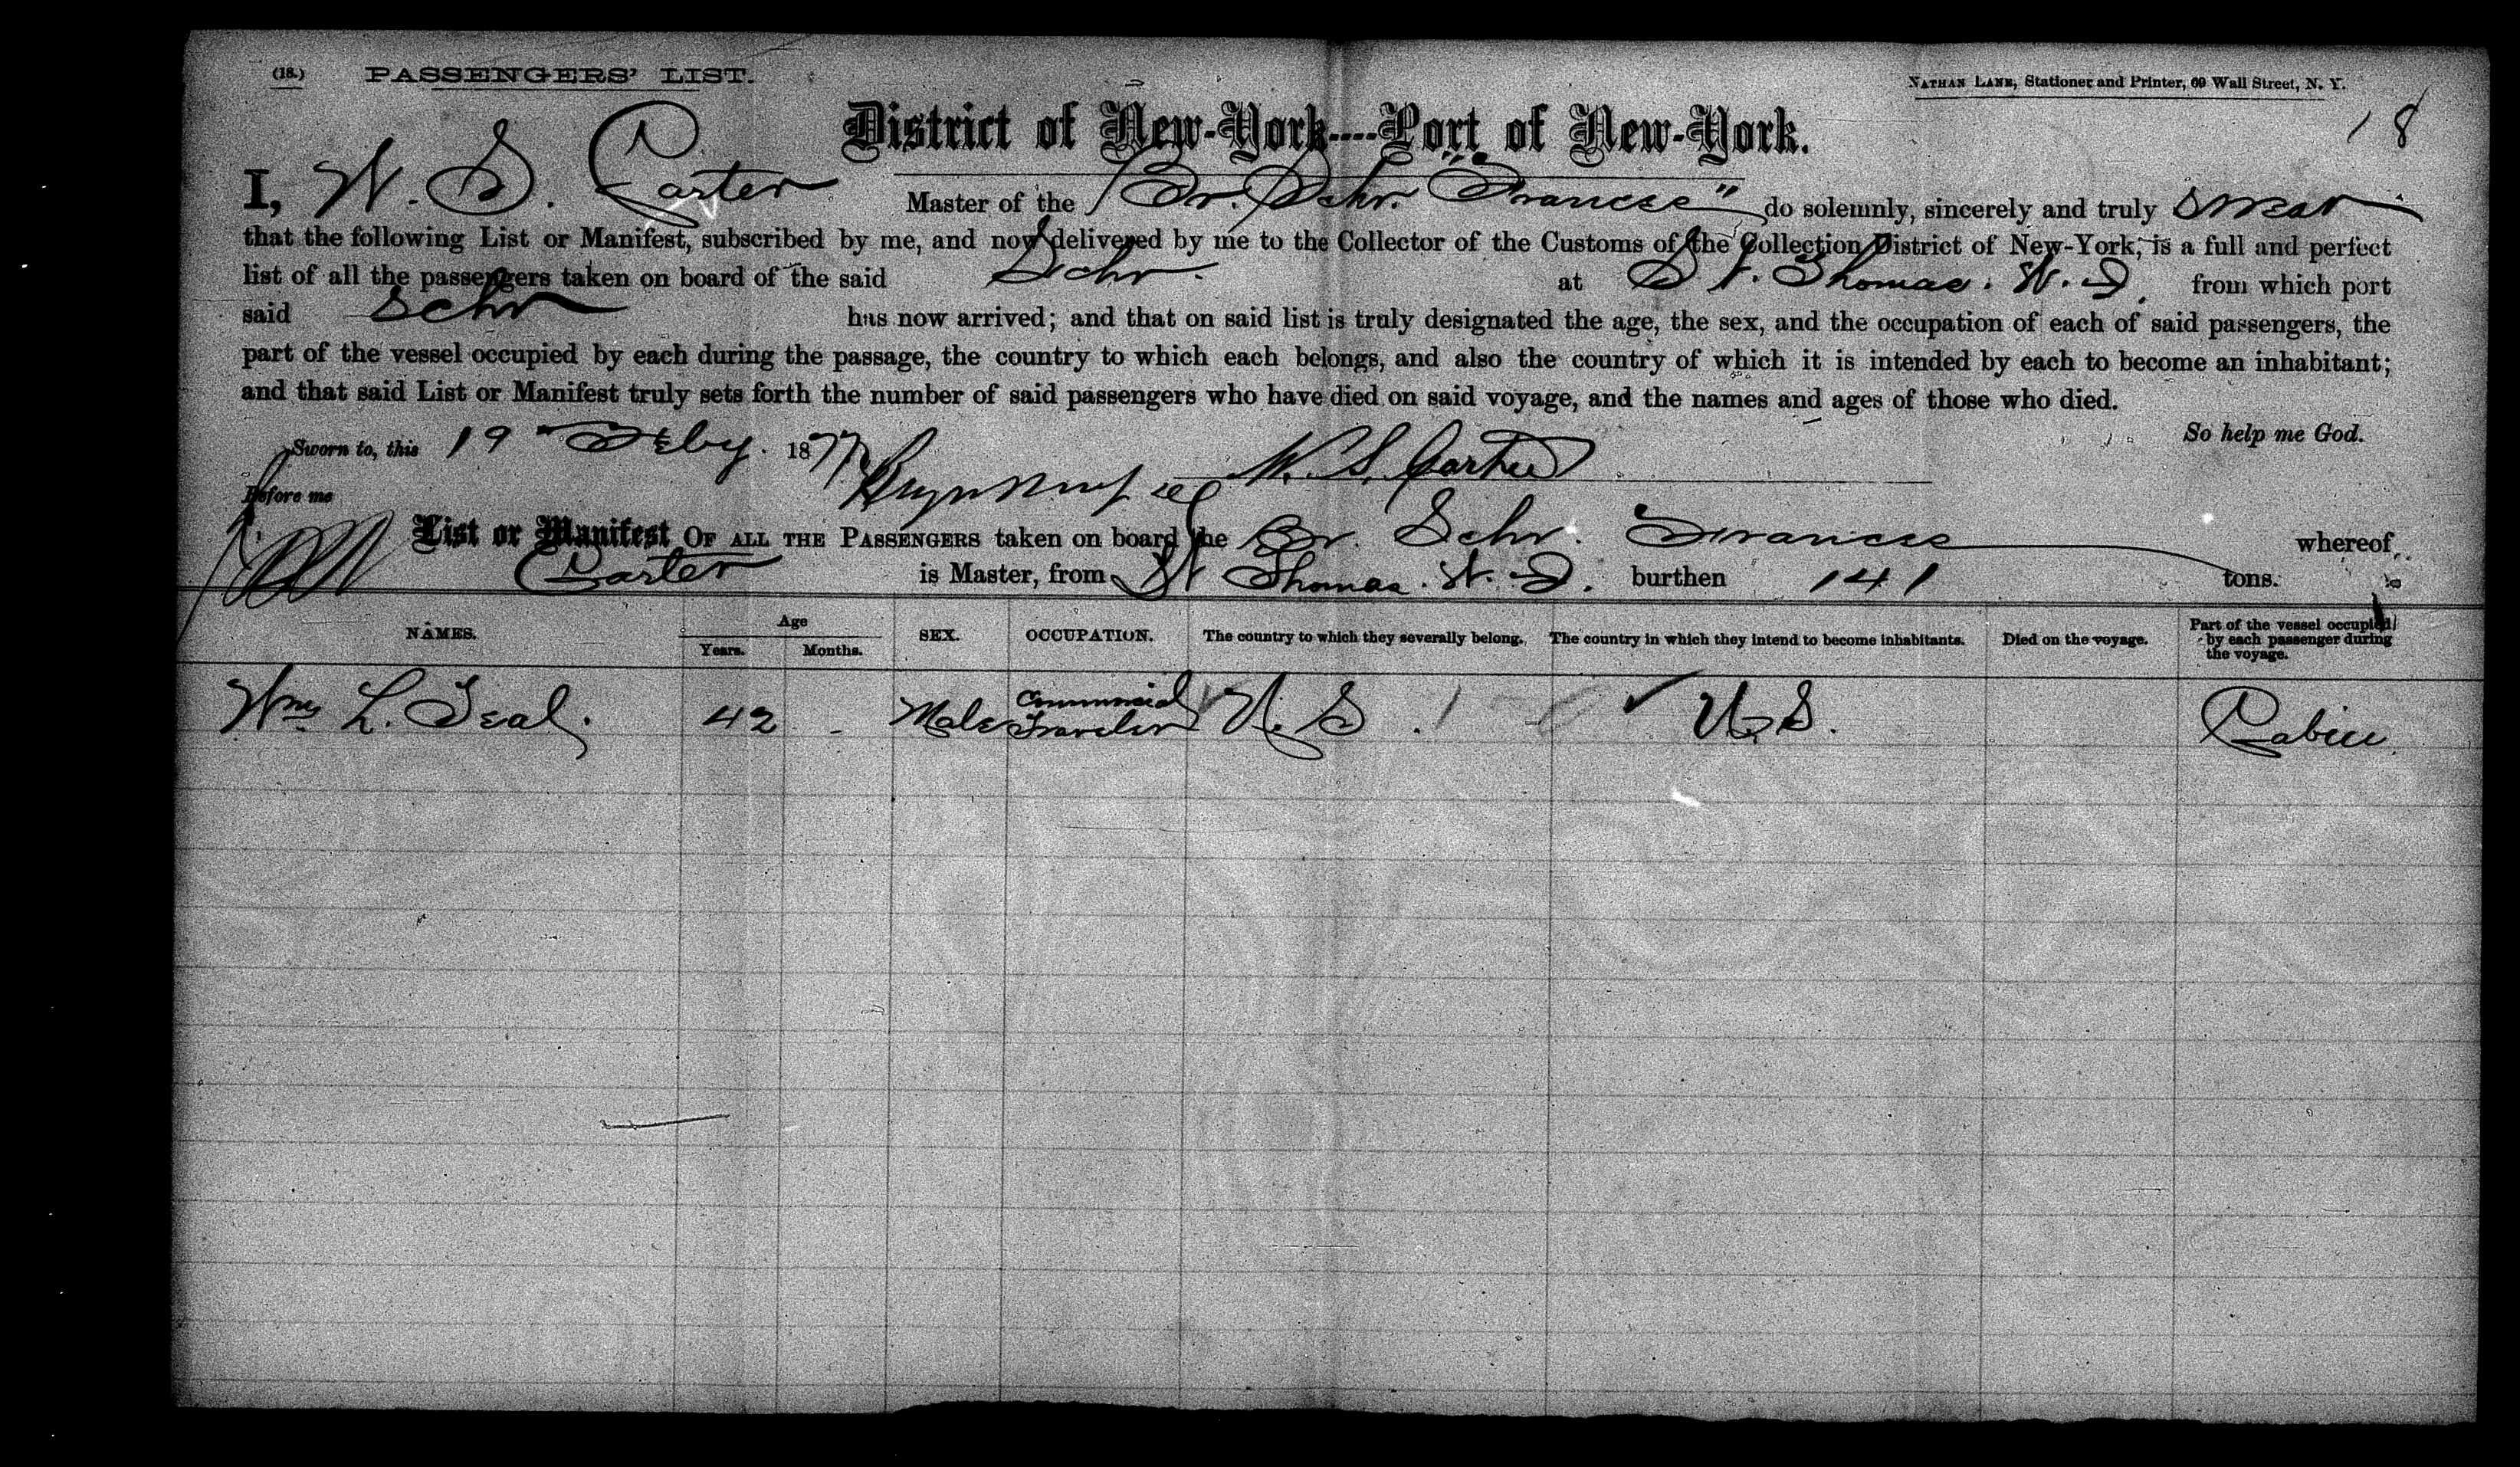 (18.) PASSENGERS' LIST.
NATHAN LANE, Stationer and Printer, 69 Wall Street, N. Y.
18
District of New-York----Port of New-York.
I, W. S. Carter Master of the Br. Schr. "Frances" do solemnly, sincerely and truly swear
that the following List or Manifest, subscribed by me, and now delivered by me to the Collector of the Customs of the Collection District of New-York, is a full and perfect
list of all the passengers taken on board of the said Schr. at St. Thomas. W. I. from which port
said Schr has now arrived; and that on said list is truly designated the age, the sex, and the occupation of each of said passengers, the
part of the vessel occupied by each during the passage, the country to which each belongs, and also the country of which it is intended by each to become an inhabitant;
and that said List or Manifest truly sets forth the number of said passengers who have died on said voyage, and the names and ages of those who died.
So help me God.
Sworn to, this 19 Feby. 1877 W. S. Carter
Before me
List or Manifest OF ALL THE PASSENGERS taken on board the Br. Schr. Frances whereof
Carter is Master, from St Thomas. W. I. burthen 141 tons.
NAMES. Age Years. Months. SEX. OCCUPATION. The country to which they severally belong. The country in which they intend to become inhabitants. Died on the voyage. Part of the vessel occupied by each passenger during the voyage.
Wm L. Seal. 42 - Male Commercial Traveler U. S. U. S. Cabin